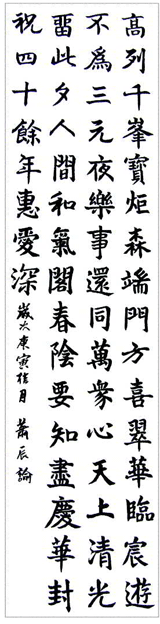 高列千峯寶炬森端門方喜翠華臨宸遊
不爲三元夜樂事還同萬衆心天上清光
畱此夕人間和氣閣春陰要知盡慶華封
祝四十餘年惠愛深 歲次庚寅桂月 蕭辰